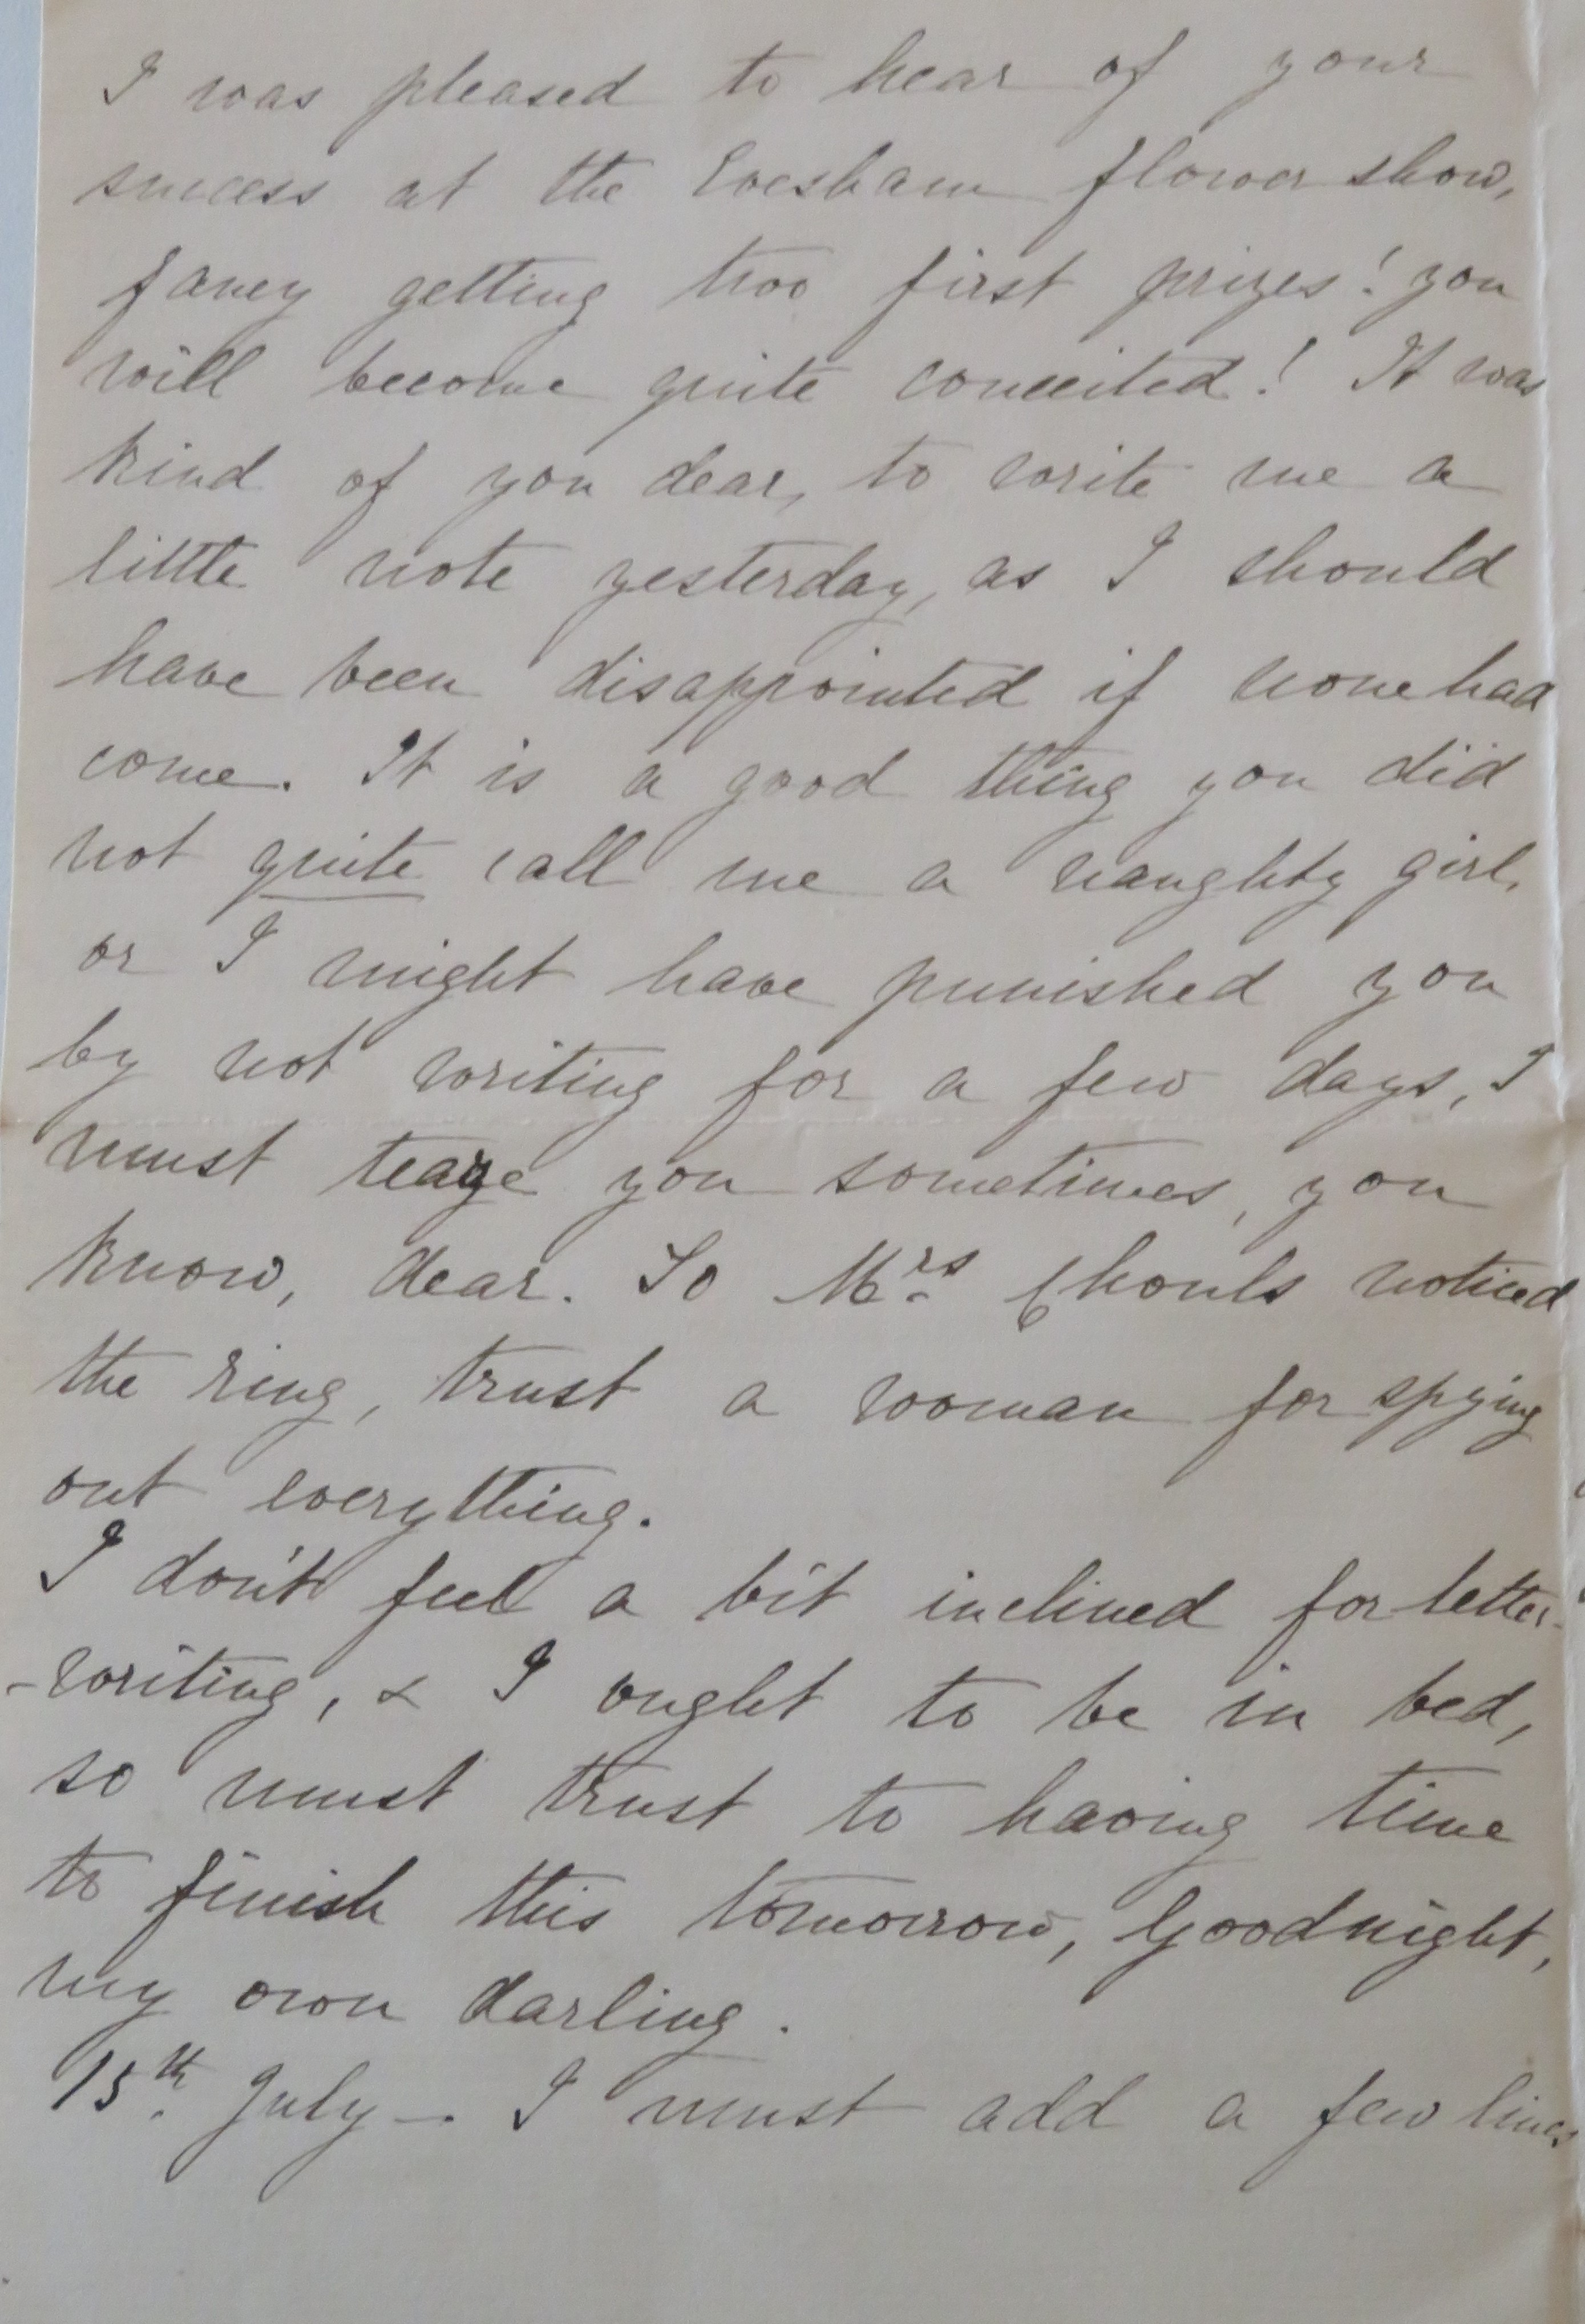 I was pleased to hear of your
success at the Evesham flower show,
fancy getting two first prizes! you
will become quite conceited! It was
kind of you dear, to write me a
little note yesterday, as I should
have been disappointed if none had
come. It is a good thing you did
not quite call me a naughty girl,
or I might have punished you
by not writing for a few days, I
must teaze you sometimes, you
know, dear. So Mrs. Chouls noticed
the ring, trust a woman for spying
out everything.
I don't feel a bit inclined for letter-
-writing, & I ought to be in bed,
so must trust to having time
to finish this tomorrow, Goodnight,
my own darling.
15th. July -. I must add a few lines